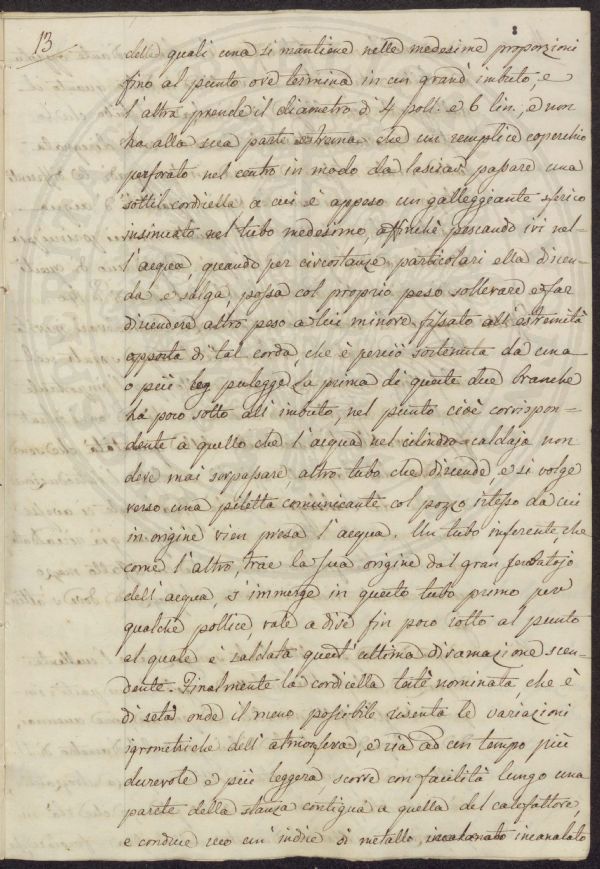 13
8
delle quali una si mantiene nelle medesime proporzioni
fino al punto ove termina in un grand' imbuto, e
l'altra prende il diametro di 4 poll. e 6 lin., e non
ha alla sua parte estrema che un semplice coperchio
perforato nel centro in modo da lasciar passare una
sottil cordicella a cui è appeso un galleggiante sferico
insinuato nel tubo medesimo, affinchè pescando ivi nel-
l'acqua, quando per circostanze particolari ella discen-
da e salga, possa col proprio peso sollevare e far
discendere altro peso a lui minore fissato all'estremità
opposta di tal corda, che è perciò sostenuta da una
o più pulegge. La prima di queste due branche
ha poco sotto all'imbuto, nel punto cioè corrispon-
dente a quello che l'acqua nel cilindro-caldajo non
deve mai sorpassare, altro tubo che discende, e si volge
verso una piletta comunicante col pozzo istesso da cui
in origine vien presa l'acqua. Un tubo inferente, che
come l'altro, trae la sua origine dal gran serbatojo
dell'acqua, s'immerge in questo tubo primo per
qualche pollice, vale a dire fin poco sotto al punto
al quale è saldata quest'ultima diramazione scen-
dente. Finalmente la cordicella testè nominata, che è
di seta onde il meno possibile risenta le variazioni
igrometriche dell'atmosfera, e sia ad un tempo più
durevole e più leggera, scorre con facilità lungo una
parete della stanza contigua a quella del calefattore,
e conduce seco un'indice di metallo, incalanato incanalato